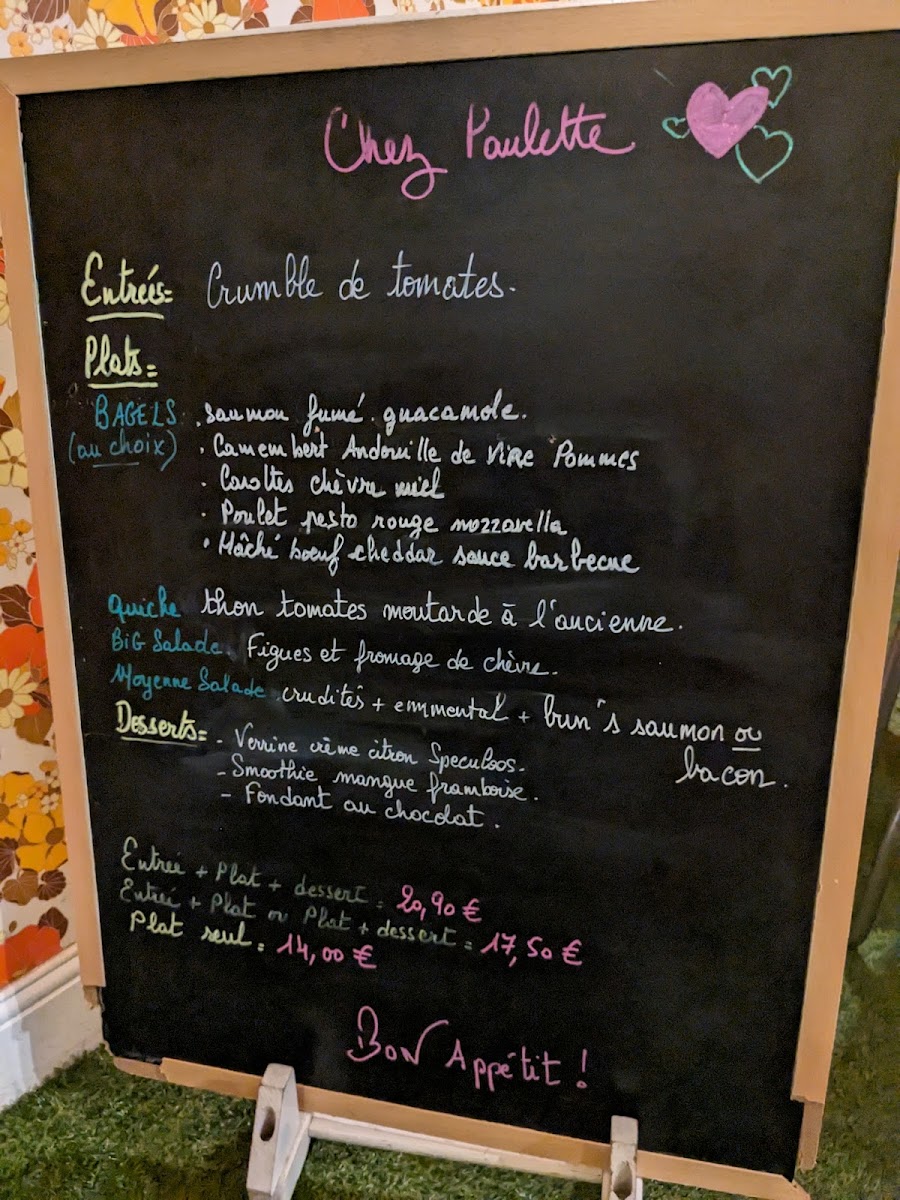 Chez Paulette
Entrées= Crumble de tomates.
Plats=
BAGELS . saumon fumé. guacamole.
(au choix) . Camembert Andouille de VIRE Pommes
. Carottes chèvre miel
. Poulet pesto rouge mozzarella
. Hâché boeuf cheddar sauce barbecue
quiche thon tomates moutarde à l'ancienne.
BiG Salade. Figues et fromage de chèvre.
Moyenne Salade. crudités + emmental + bun's saumon ou
bacon.
Desserts= - Verrine crème citron Speculoos.
- Smoothie mangue framboise.
- Fondant au chocolat.
Entrée + Plat + dessert = 20,90 €
Entrée + Plat ou Plat + dessert = 17,50 €
Plat seul = 14,00 €
BON Appétit !